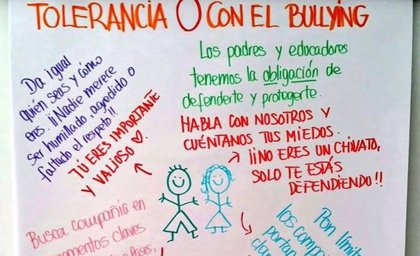 TOLERANCIA O CON EL BULLYING
Da igual
quién seas y cómo
eres. ¡¡Nadie merece
ser humillado, agredido o
faltado el respeto!!
TÚ ERES IMPORTANTE
Y VALIOSO
Los padres y educadores
tenemos la obligación de
defenderte y protegerte.
HABLA CON NOSOTROS Y
CUÉNTANOS TUS MIEDOS.
¡¡NO ERES UN CHIVATO,
SOLO TE ESTÁS
DEFENDIENDO!!
Busca compañía en
momentos claves
Pon límit
los comp